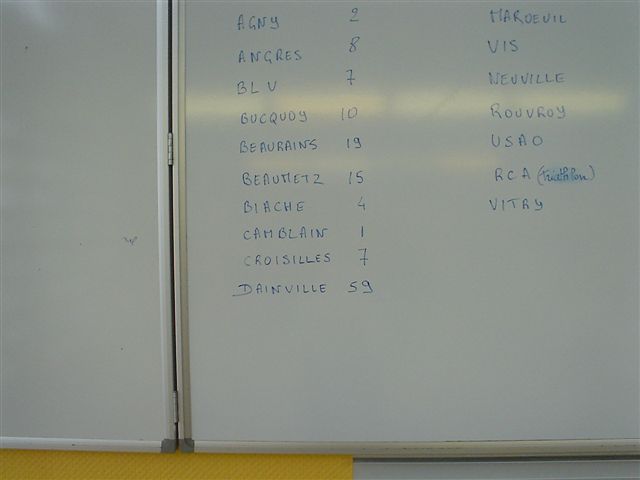 AGNY 2
ANGRES 8
BLV 7
BUCQUOY 10
BEAURAINS 19
BEAUMETZ 15
BIACHE 4
CAMBLAIN 1
CROISILLES 7
DAINVILLE 59
MAROEUIL
VIS
NEUVILLE
ROUVROY
USAO
RCA (triathlon)
VITRY